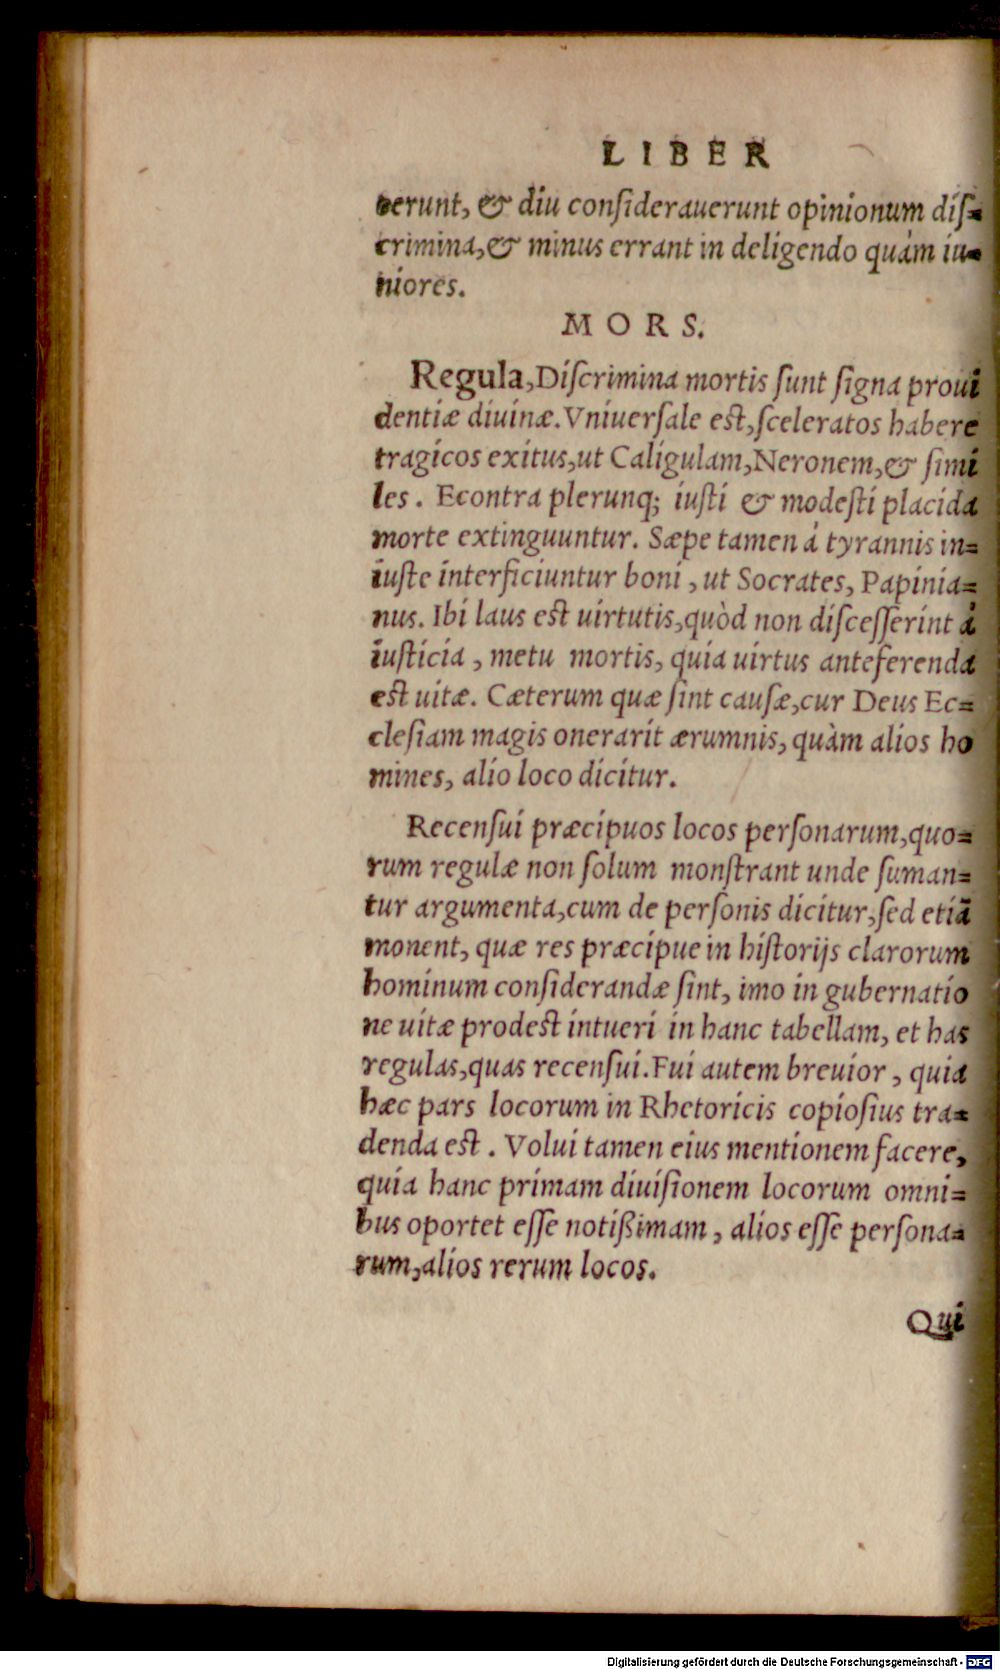 LIBER
uerunt, & diu considerauerunt opinionum diſ=
crimina, & minus errant in deligendo quàm iu=
niores.
MORS.
Regula, Diſcrimina mortis ſunt ſigna proui
dentiæ diuinæ. Vniuerſale eſt, ſceleratos habere
tragicos exitus, ut Caligulam, Neronem, & ſimi
les. Econtra plerunq; iuſti & modeſti placida
morte extinguuntur. Sæpe tamen à tyrannis in=
iuſte interficiuntur boni, ut Socrates, Papinia=
nus. Ibi laus eſt uirtutis, quòd non diſceſſerint à
iuſticia, metu mortis, quia uirtus anteferenda
eſt uitæ. Cæterum quæ ſint cauſæ, cur Deus Ec=
cleſiam magis onerarit ærumnis, quàm alios ho
mines, alio loco dicitur.
Recenſui præcipuos locos perſonarum, quo=
rum regulæ non ſolum monſtrant unde ſuman=
tur argumenta, cum de perſonis dicitur, ſed etiã
monent, quæ res præcipue in hiſtorijs clarorum
hominum conſiderandæ ſint, imo in gubernatio
ne uitæ prodeſt intueri in hanc tabellam, et has
regulas, quas recenſui. Fui autem breuior, quia
hæc pars locorum in Rhetoricis copioſius tra=
denda eſt. Volui tamen eius mentionem facere,
quia hanc primam diuiſionem locorum omni=
bus oportet eſſe notißimam, alios eſſe perſona=
rum, alios rerum locos.
Qui
Digitalisierung gefördert durch die Deutsche Forschungsgemeinschaft - DFG